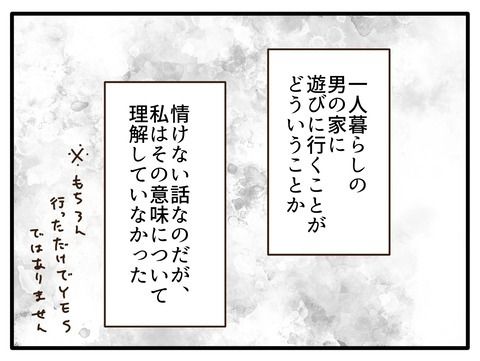 一人暮らしの
男の家に
遊びに行くことが
どういうことか
情けない話なのだが、
私はその意味について
理解していなかった
※もちろん
行っただけでYES
ではありません